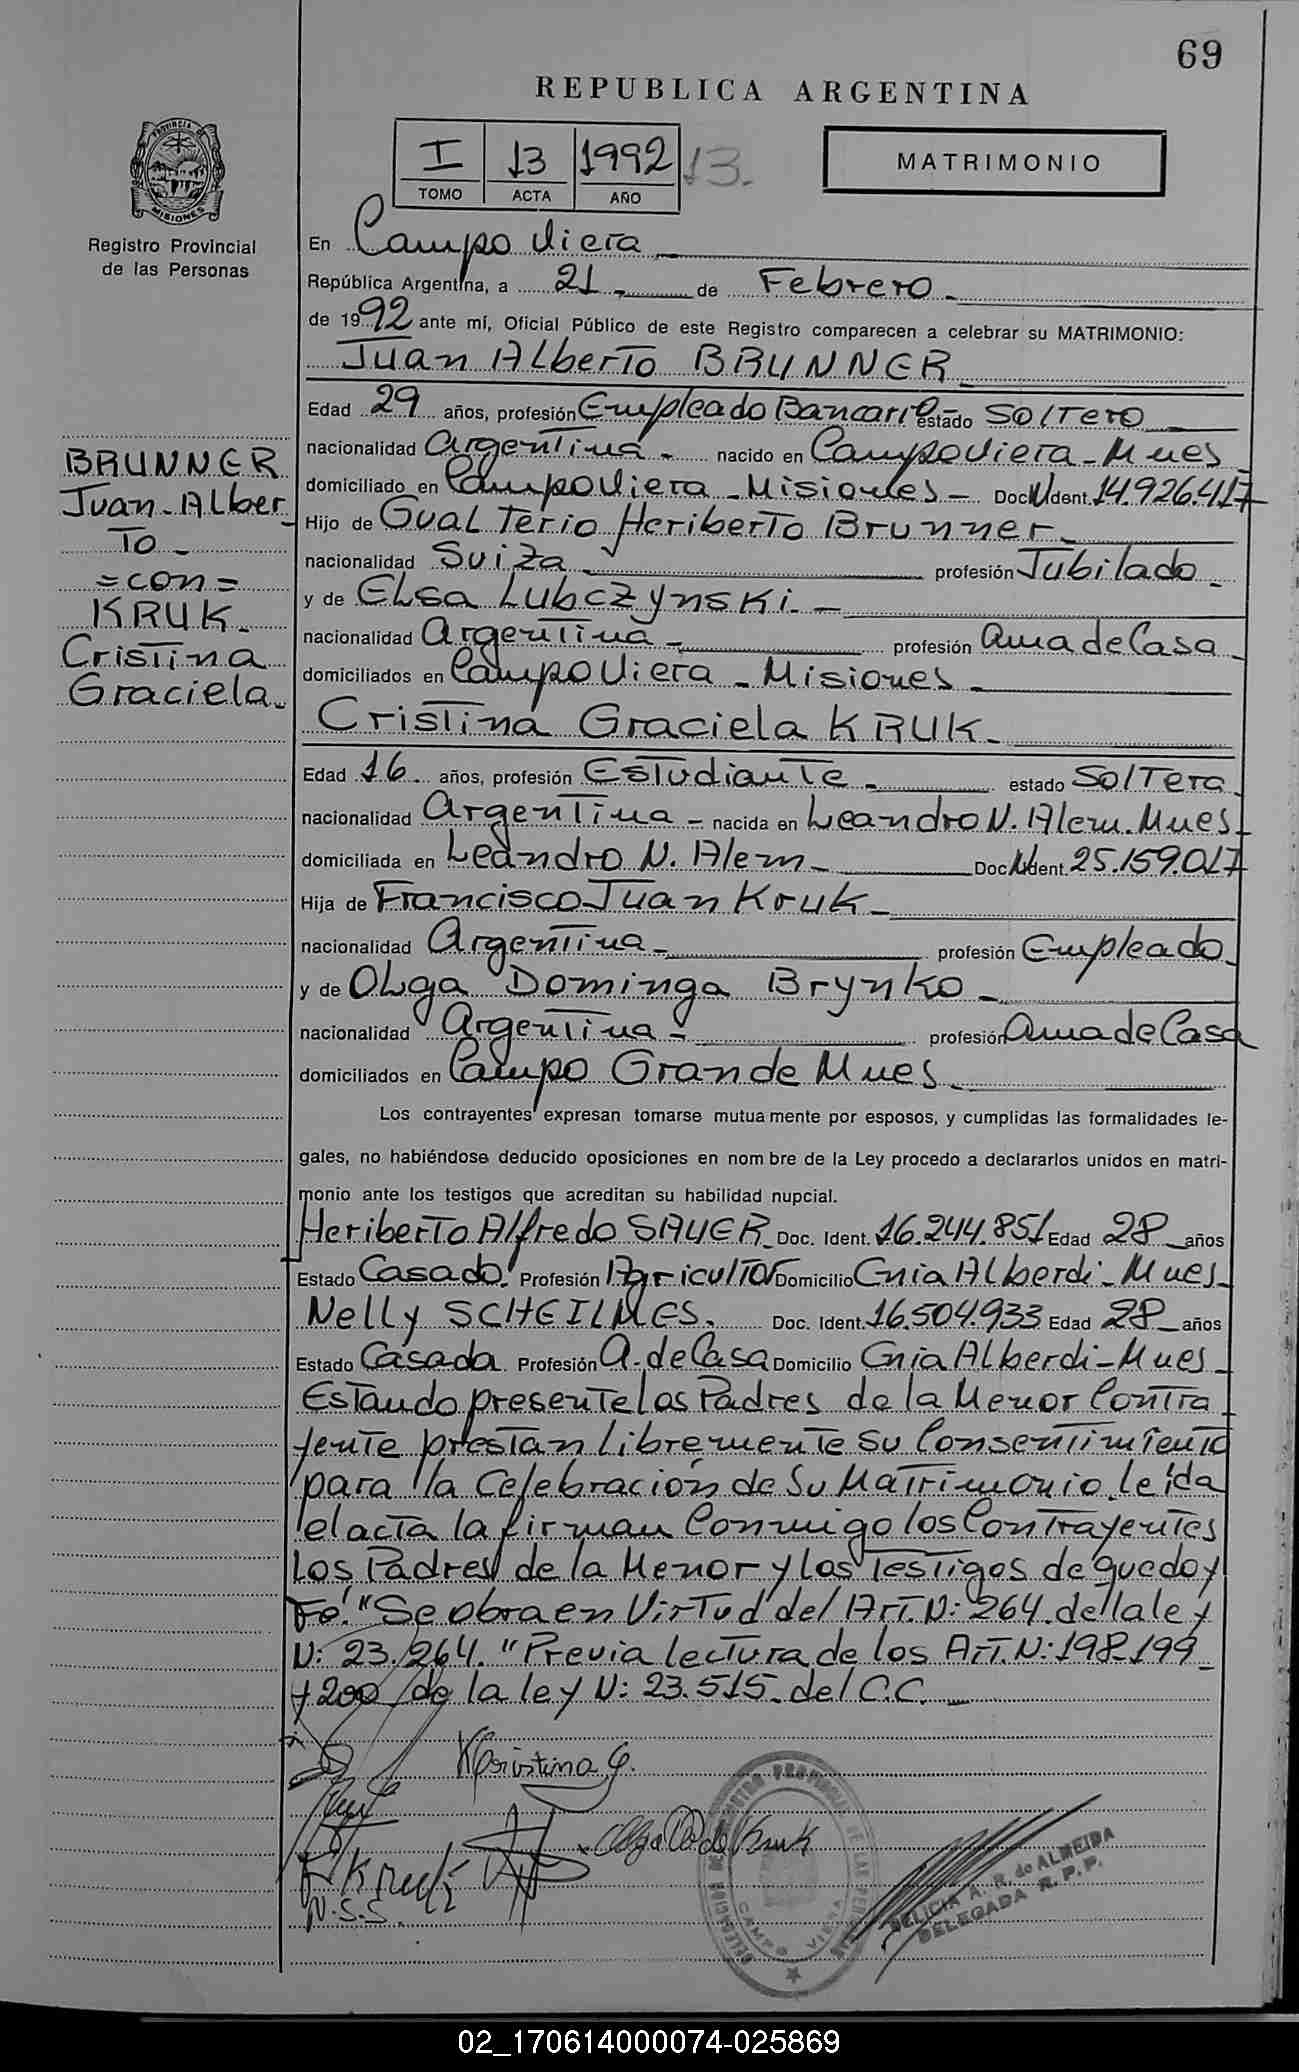 69
REPUBLICA ARGENTINA
I 13 1992 13.
TOMO ACTA AÑO
MATRIMONIO
PROVINCIA DE
MISIONES
Registro Provincial
de las Personas
En Campo Viera
República Argentina, a 21 de Febrero
de 1992 ante mí, Oficial Público de este Registro comparecen a celebrar su MATRIMONIO:
Juan Alberto BRUNNER
Edad 29 años, profesión Empleado Bancario estado Soltero
nacionalidad Argentina - nacido en Campo Viera - Mnes
domiciliado en Campo Viera - Misiones - Doc. N. Ident. 14.926.417
Hijo de Gualterio Heriberto Brunner
nacionalidad Suiza profesión Jubilado
y de Elsa Lubczynski. -
nacionalidad Argentina - profesión Ama de Casa
domiciliados en Campo Viera - Misiones
BRUNNER
Juan - Alber
to -
= con =
KRUK.
Cristina
Graciela.
Cristina Graciela KRUK -
Edad 16 años, profesión Estudiante - estado Soltera
nacionalidad Argentina - nacida en Leandro N. Alem. Mnes
domiciliada en Leandro N. Alem - Doc. N. Ident. 25.159.017
Hija de Francisco Juan Kruk -
nacionalidad Argentina - profesión Empleado
y de Olga Dominga Brynko -
nacionalidad Argentina - profesión Ama de Casa
domiciliados en Campo Grande Mnes
Los contrayentes expresan tomarse mutuamente por esposos, y cumplidas las formalidades le-
gales, no habiéndose deducido oposiciones en nombre de la Ley procedo a declararlos unidos en matri-
monio ante los testigos que acreditan su habilidad nupcial.
Heriberto Alfredo SAUER Doc. Ident. 16.244.851 Edad 28 años
Estado Casado Profesión Agricultor Domicilio Cnia Alberdi - Mnes
Nelly SCHEILMES. Doc. Ident. 16.504.933 Edad 28 años
Estado Casada Profesión A. de Casa Domicilio Cnia Alberdi - Mnes
Estando presente los Padres de la Menor Contra
yente prestan libremente su Consentimiento
para la Celebración de Su Matrimonio. leída
el acta la firman Conmigo los Contrayentes
Los Padres de la Menor y los Testigos de que doy
Fe. "Se obra en Virtud del Art. N: 264. de la ley
N: 23.264. "Previa lectura de los Art. N: 198-199
y 200 de la ley N: 23.515. del C.C.
Kcristina G.
Olga D de Kruk
F Kruk
N.S.S.
CAMPO VIERA
DELICIA A. R. de ALMEIDA
DELEGADA R.P.P.
02_170614000074-025869